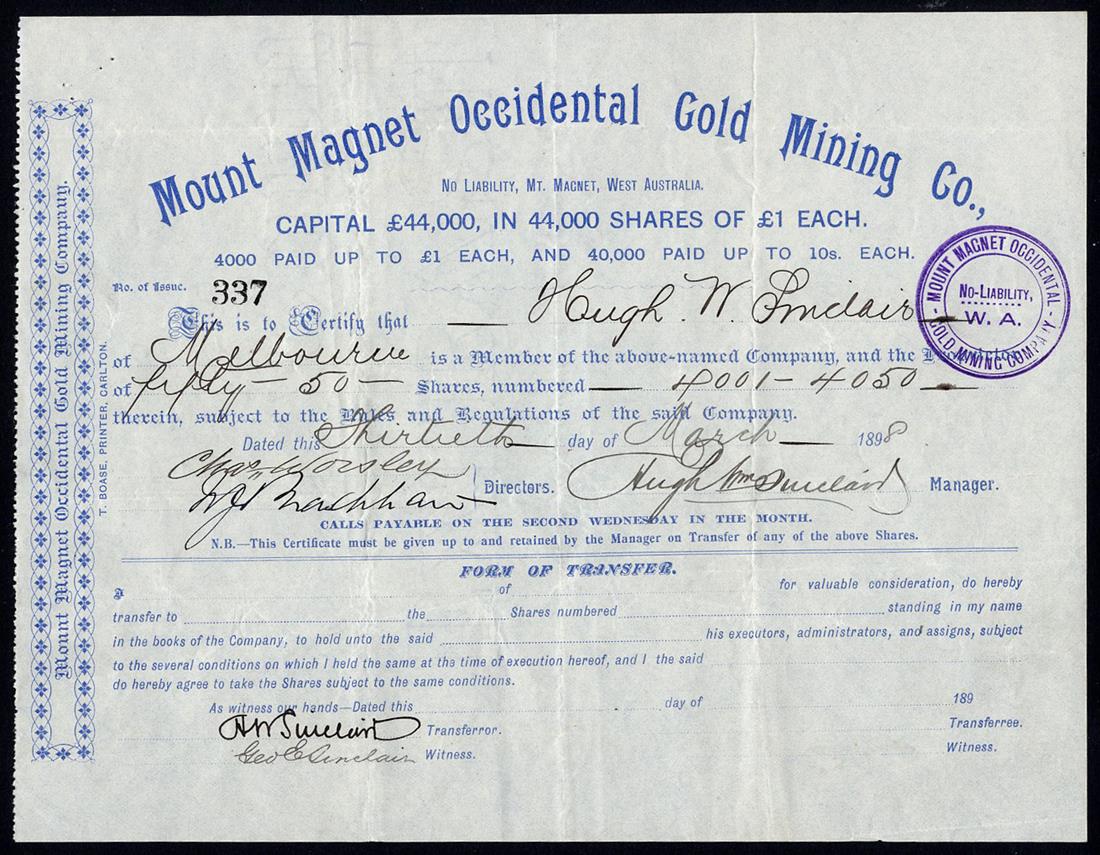 Mount Magnet Occidental Gold Mining Co.,
No Liability, Mt. Magnet, West Australia.
CAPITAL £44,000, IN 44,000 SHARES OF £1 EACH.
4000 PAID UP TO £1 EACH, AND 40,000 PAID UP TO 10s. EACH.
MOUNT MAGNET OCCIDENTAL
No-Liability,
W. A.
GOLD MINING COMPANY
No. of Issue. 337
This is to Certify that Hugh W. Sinclair
of Melbourne is a Member of the above-named Company, and the
of fifty – 50 – Shares, numbered 4001 – 4050
therein, subject to the Rules and Regulations of the said Company.
Dated this Thirtieth day of March 1898
Chas. Worsley
Directors.
Hugh Wm Sinclair Manager.
CALLS PAYABLE ON THE SECOND WEDNESDAY IN THE MONTH.
N.B.—This Certificate must be given up to and retained by the Manager on Transfer of any of the above Shares.
FORM OF TRANSFER.
I of for valuable consideration, do hereby
transfer to the Shares numbered standing in my name
in the books of the Company, to hold unto the said his executors, administrators, and assigns, subject
to the several conditions on which I held the same at the time of execution hereof, and I the said
do hereby agree to take the Shares subject to the same conditions.
As witness our hands—Dated this day of 189
H W Sinclair Transferror. Transferree.
Geo E Sinclair Witness. Witness.
Mount Magnet Occidental Gold Mining Company.
T. BOASE, PRINTER, CARLTON.